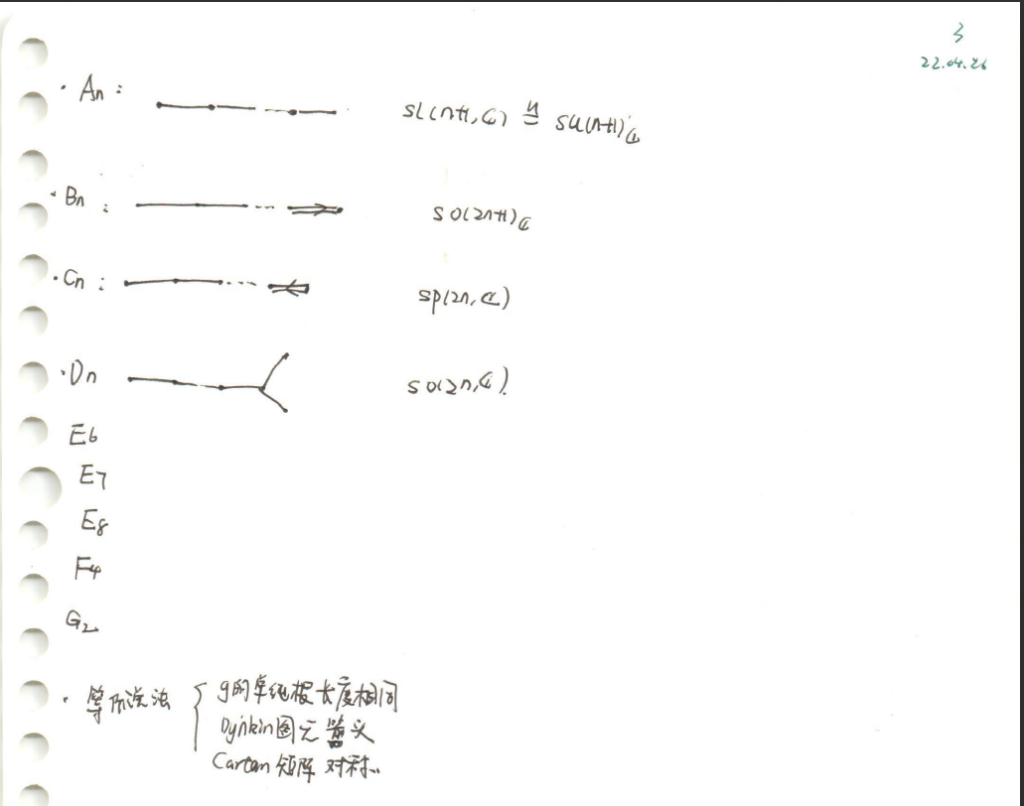 3
22.04.26
· An : sl(n+1, ℂ) ≅ su(n+1)ℂ
· Bn : so(2n+1)ℂ
· Cn : sp(2n, ℂ)
· Dn so(2n, ℂ).
E6
E7
E8
F4
G2
· 等价说法 { g的单纯根长度相同
Dynkin图无箭头
Cartan 矩阵 对称..